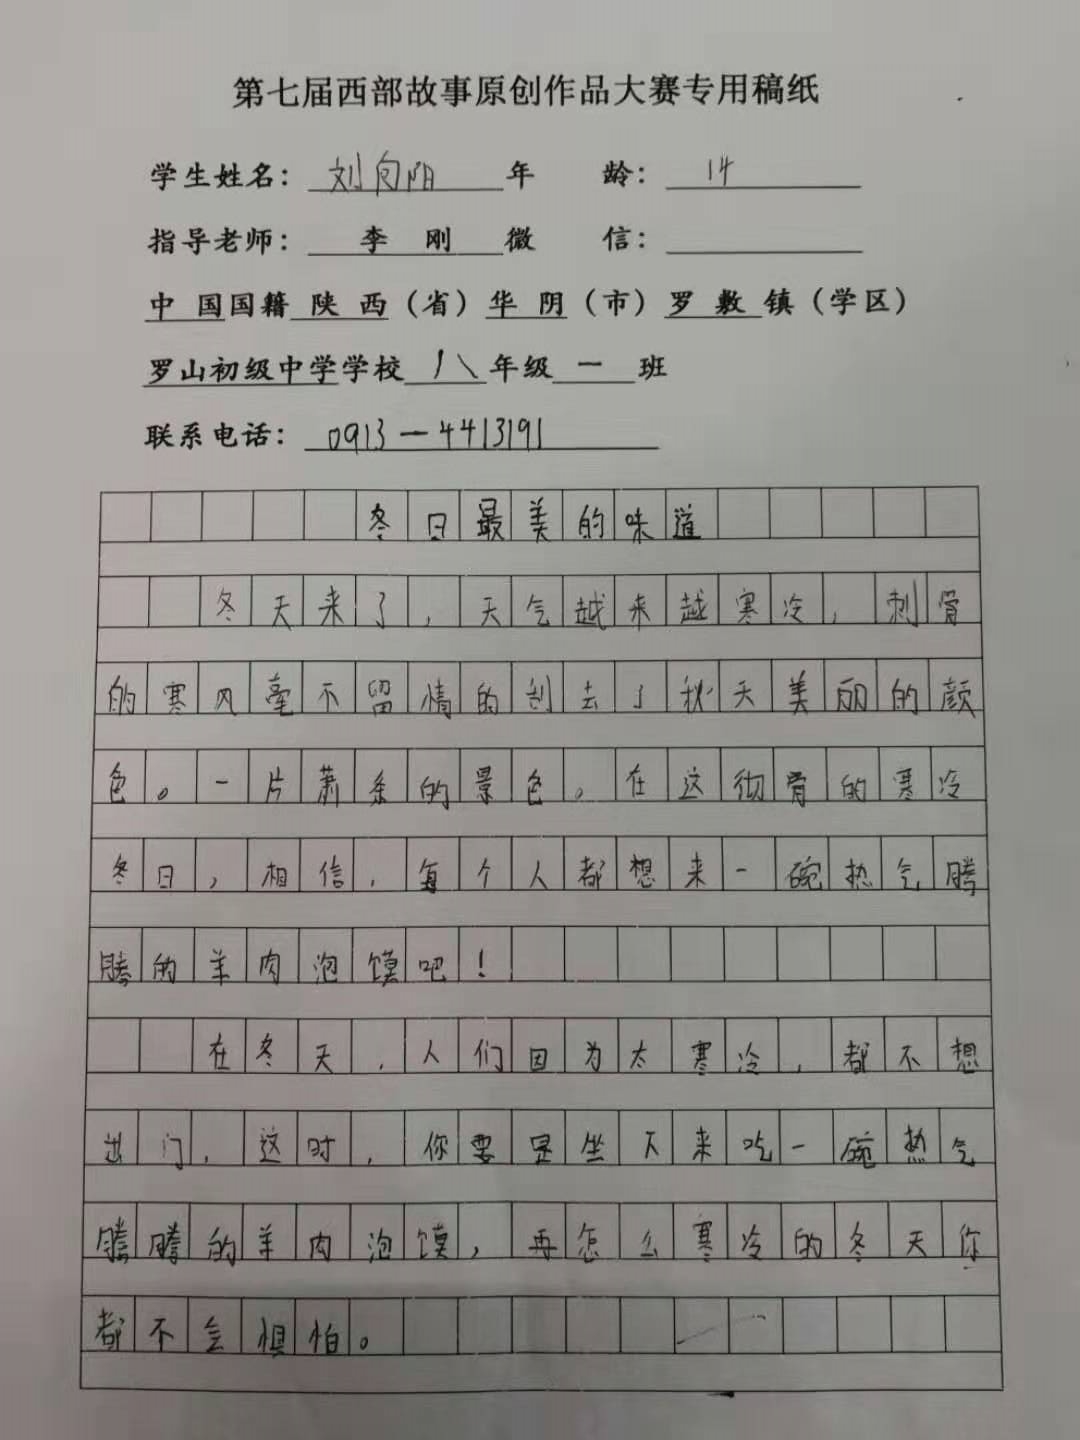 第七届西部故事原创作品大赛专用稿纸
学生姓名：刘向阳 年 龄：14
指导老师：李 刚 微 信：
中 国国籍 陕 西（省）华 阴（市）罗 敷 镇（学区）
罗山初级中学学校 八 年级 一 班
联系电话：0913—4413191
冬日最美的味道
冬天来了，天气越来越寒冷，刺骨
的寒风毫不留情的刮去了秋天美丽的颜
色。一片萧条的景色。在这彻骨的寒冷
冬日，相信，每个人都想来一碗热气腾
腾的羊肉泡馍吧！
在冬天，人们因为太寒冷，都不想
出门，这时，你要是坐下来吃一碗热气
腾腾的羊肉泡馍，再怎么寒冷的冬天你
都不会惧怕。